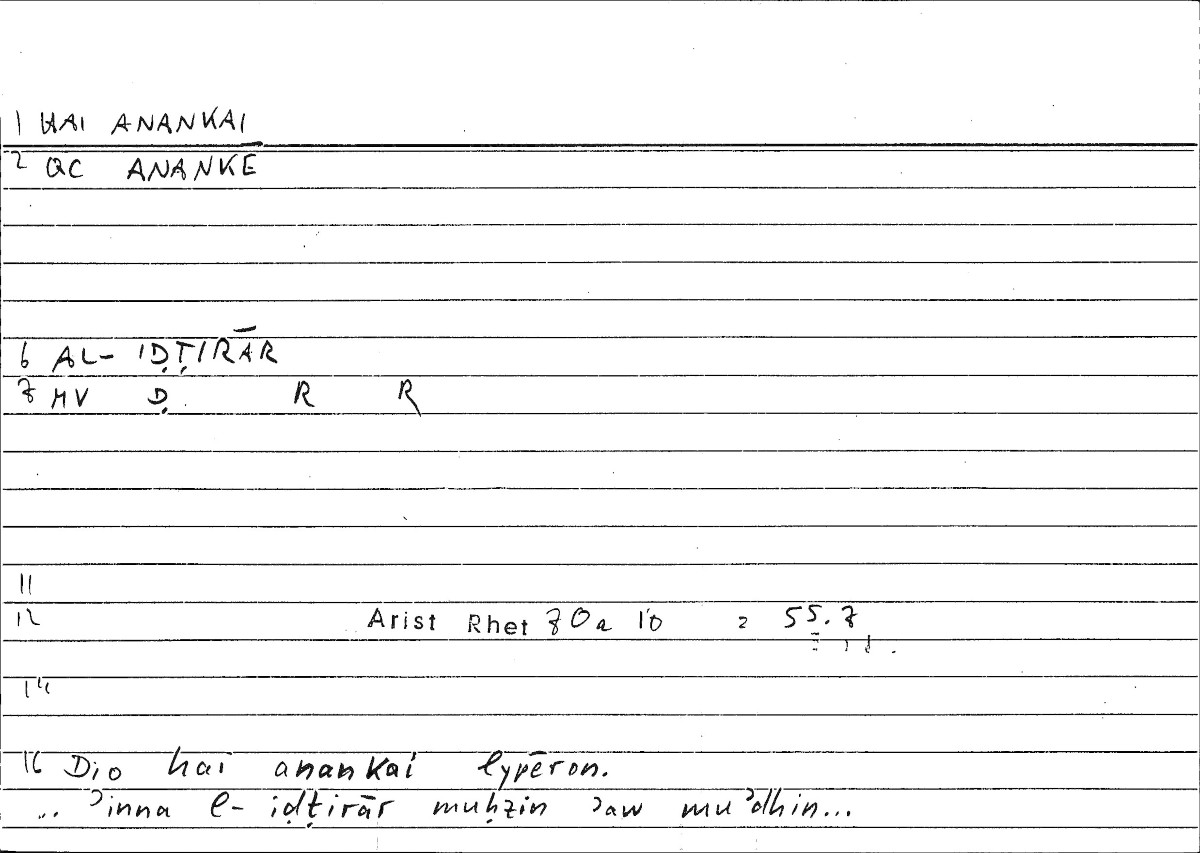 1 HAI ANANKAI
2 QC ANANKĒ
6 AL- IḌṬIRĀR
7 MV Ḍ R R
11
12 Arist Rhet 70a 10 = 55.7
14
16 Dio hai anankai lypēron.
.. ʾinna l- iḍṭirār muḥzin ʾaw muʾdhin...